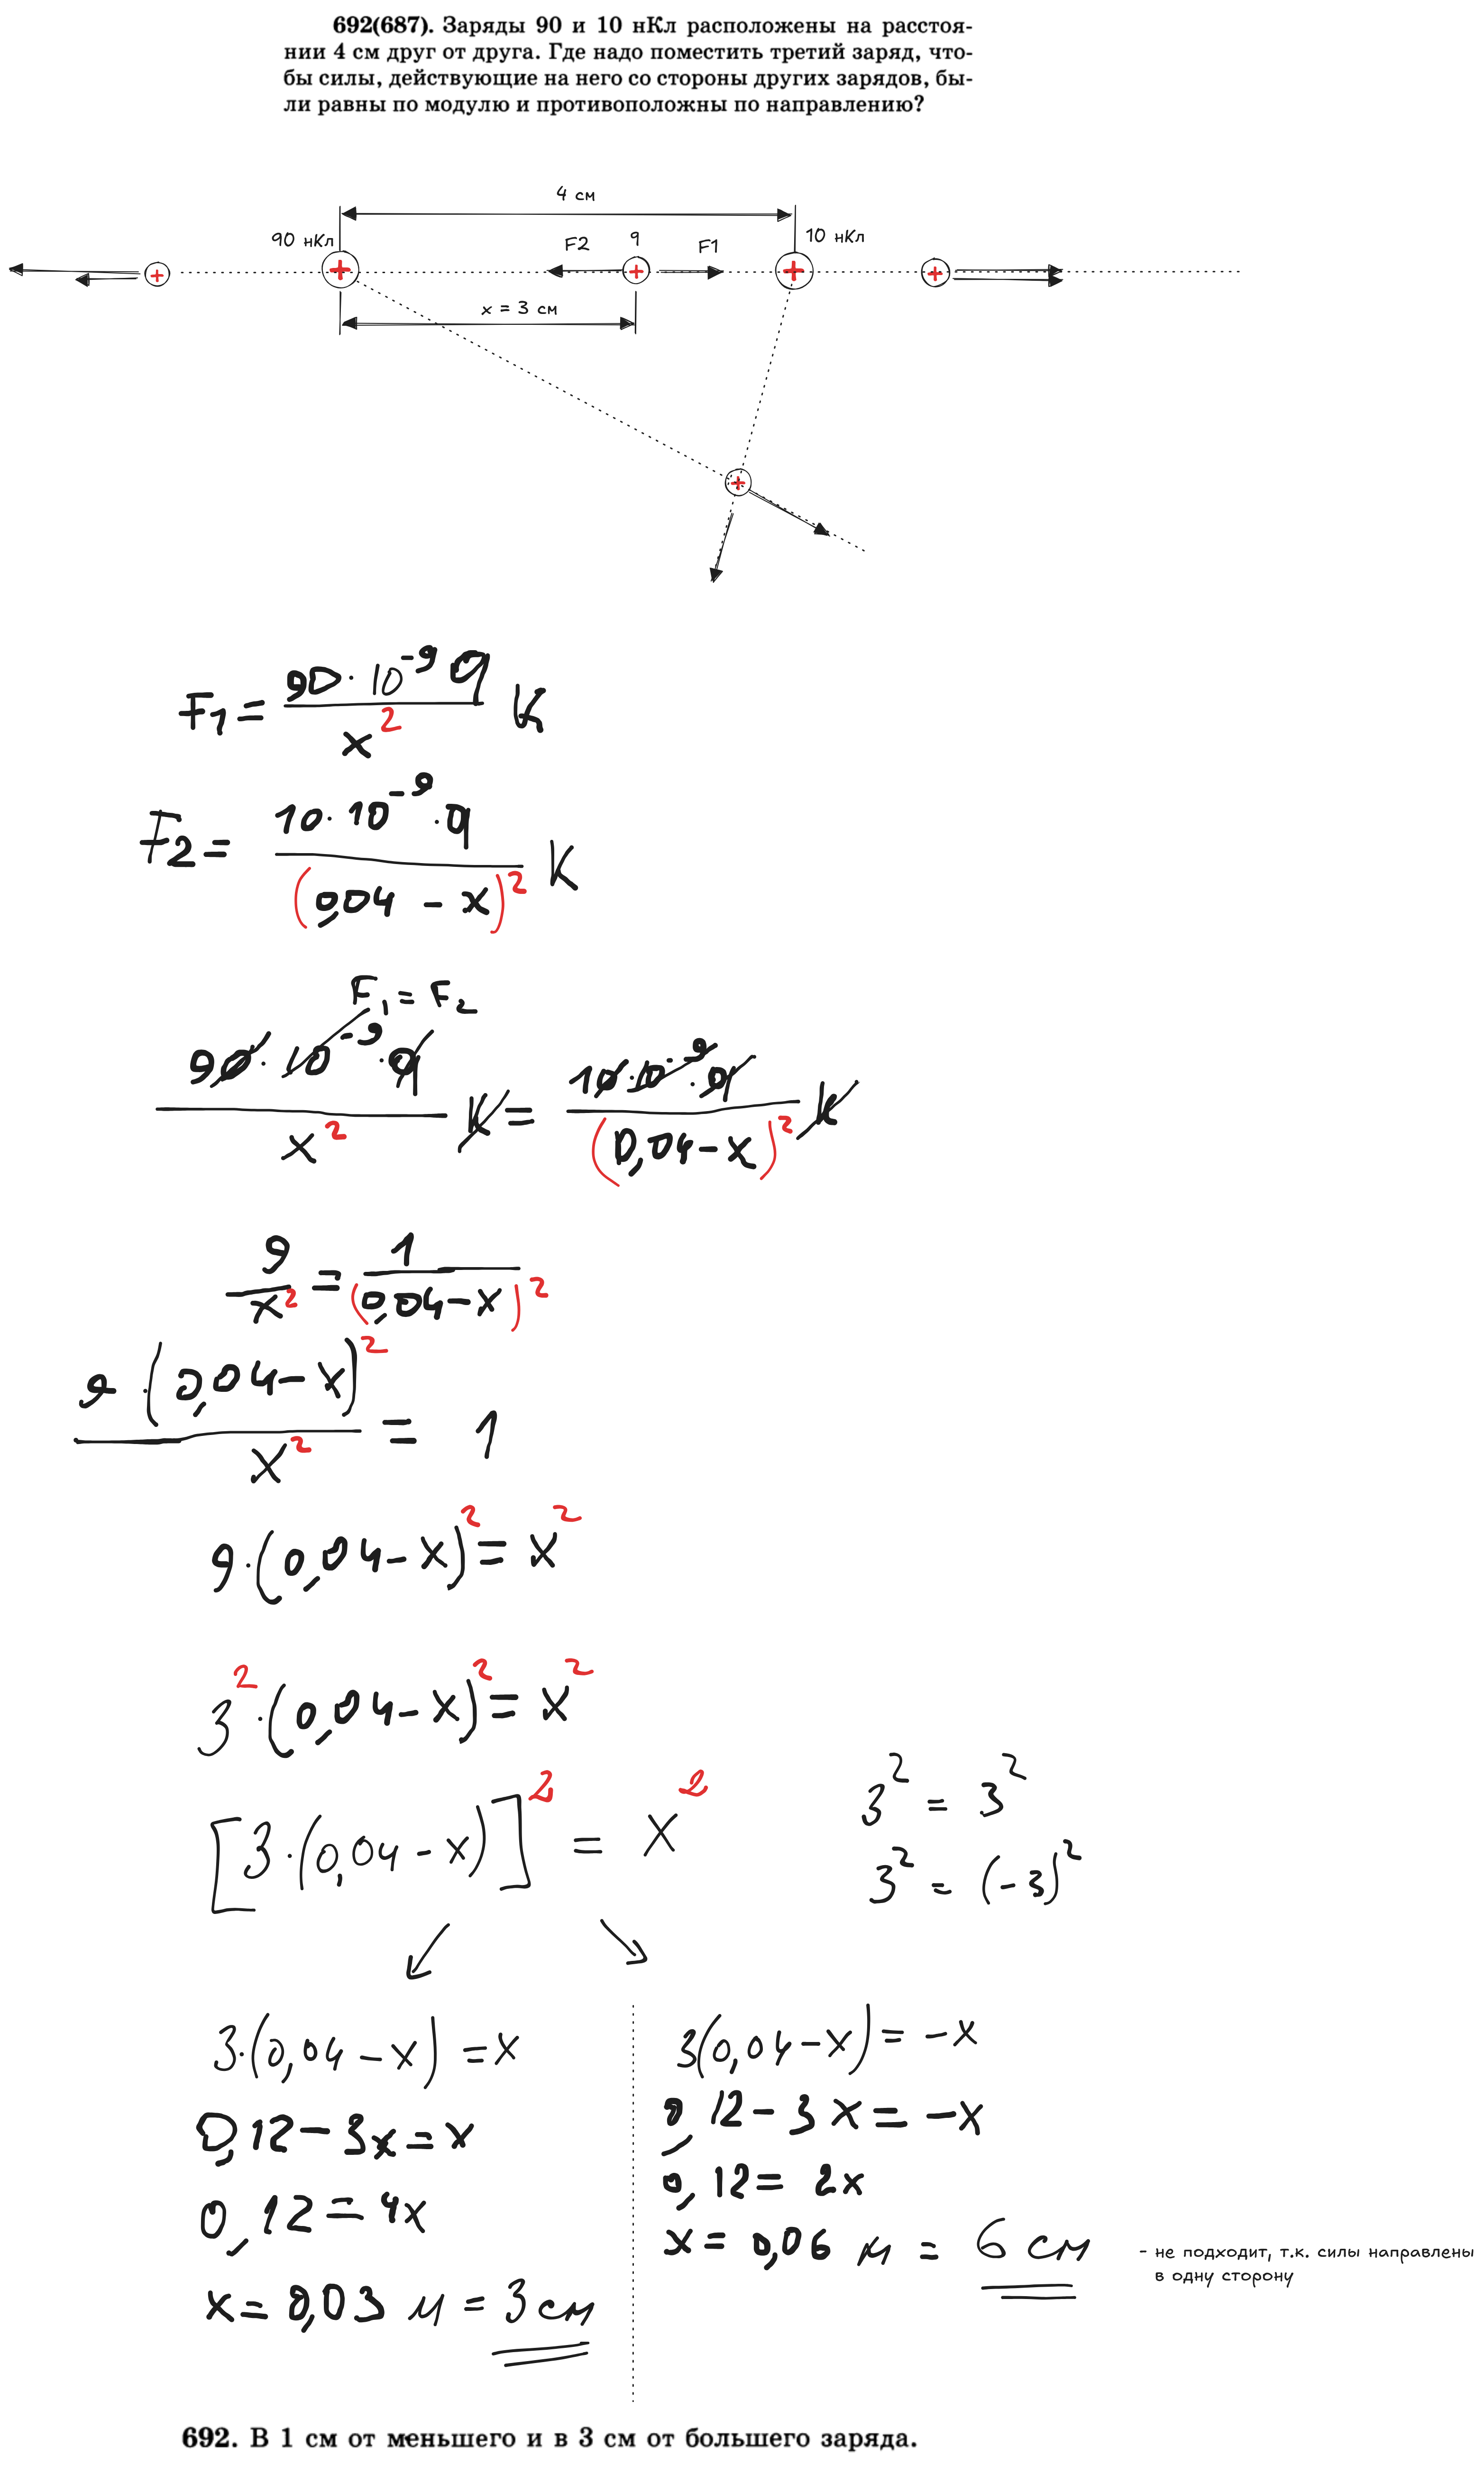 692(687). Заряды 90 и 10 нКл расположены на расстоя-
нии 4 см друг от друга. Где надо поместить третий заряд, что-
бы силы, действующие на него со стороны других зарядов, бы-
ли равны по модулю и противоположны по направлению?
4 см
90 нКл F2 q F1 10 нКл
+ + + + +
x = 3 см
+
F1 = 90 · 10^-9 q / x^2 K
F2 = 10 · 10^-9 · q / (0,04 - x)^2 K
F1 = F2
90 · 10^-9 · q / x^2 K = 10 · 10^-9 · q / (0,04 - x)^2 K
9 / x^2 = 1 / (0,04 - x)^2
9 · (0,04 - x)^2 / x^2 = 1
9 · (0,04 - x)^2 = x^2
3^2 · (0,04 - x)^2 = x^2
[3 · (0,04 - x)]^2 = x^2
3^2 = 3^2
3^2 = (-3)^2
3 · (0,04 - x) = x
0,12 - 3x = x
0,12 = 4x
x = 0,03 м = 3 см
3(0,04 - x) = -x
0,12 - 3x = -x
0,12 = 2x
x = 0,06 м = 6 см
- не подходит, т.к. силы направлены
в одну сторону
692. В 1 см от меньшего и в 3 см от большего заряда.